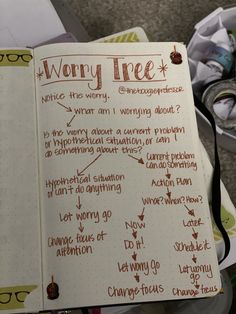 *Worry Tree*
@thegougeprofessor
Notice the worry.
What am I worrying about?
Is the worry about a current problem
or hypothetical situation, or can
do something about this?
Current problem
can do something
Hypothetical situation
or can't do anything
Action Plan
What? When? How?
Let worry go
Change focus of
attention
Now
Do it!
Let worry go
Change focus
Later
Schedule it
Let worry go
Change focus